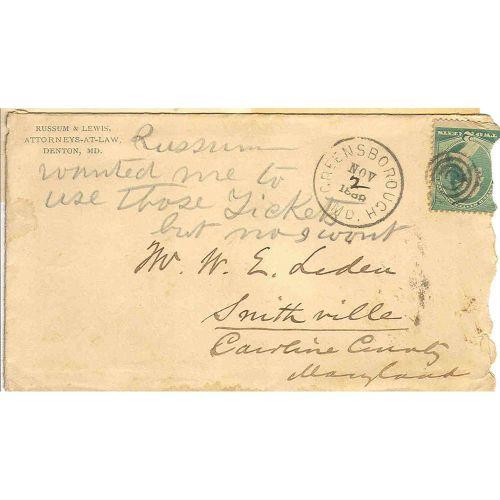 RUSSUM & LEWIS,
ATTORNEYS-AT-LAW,
DENTON, MD.
Russum
wanted me to
use those Tickets
but no I wont
GREENSBOROUGH, MD.
NOV
2
Mr. W. E. Leden
Smithville
Caroline County
Maryland